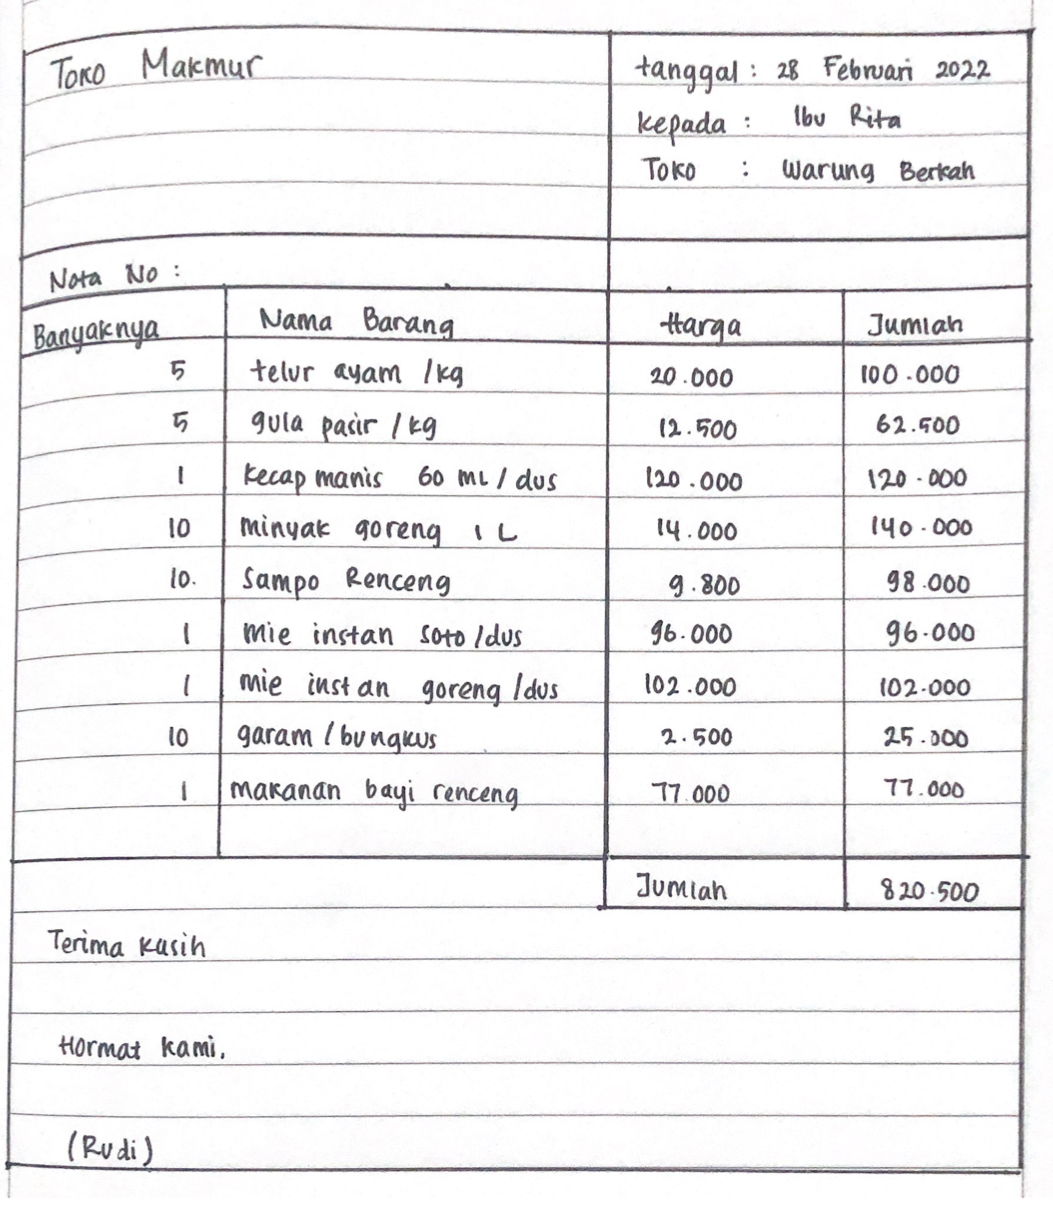 Toko Makmur
tanggal : 28 Februari 2022
kepada : Ibu Rita
Toko : Warung Berkah
Nota No :
Banyaknya Nama Barang Harga Jumlah
5 telur ayam /kg 20.000 100.000
5 gula pasir /kg 12.500 62.500
1 kecap manis 60 ml / dus 120.000 120.000
10 minyak goreng 1 L 14.000 140.000
10. Sampo Renceng 9.800 98.000
1 mie instan soto /dus 96.000 96.000
1 mie instan goreng /dus 102.000 102.000
10 garam / bungkus 2.500 25.000
1 makanan bayi renceng 77.000 77.000
Jumlah 820.500
Terima kasih
Hormat kami,
(Rudi)